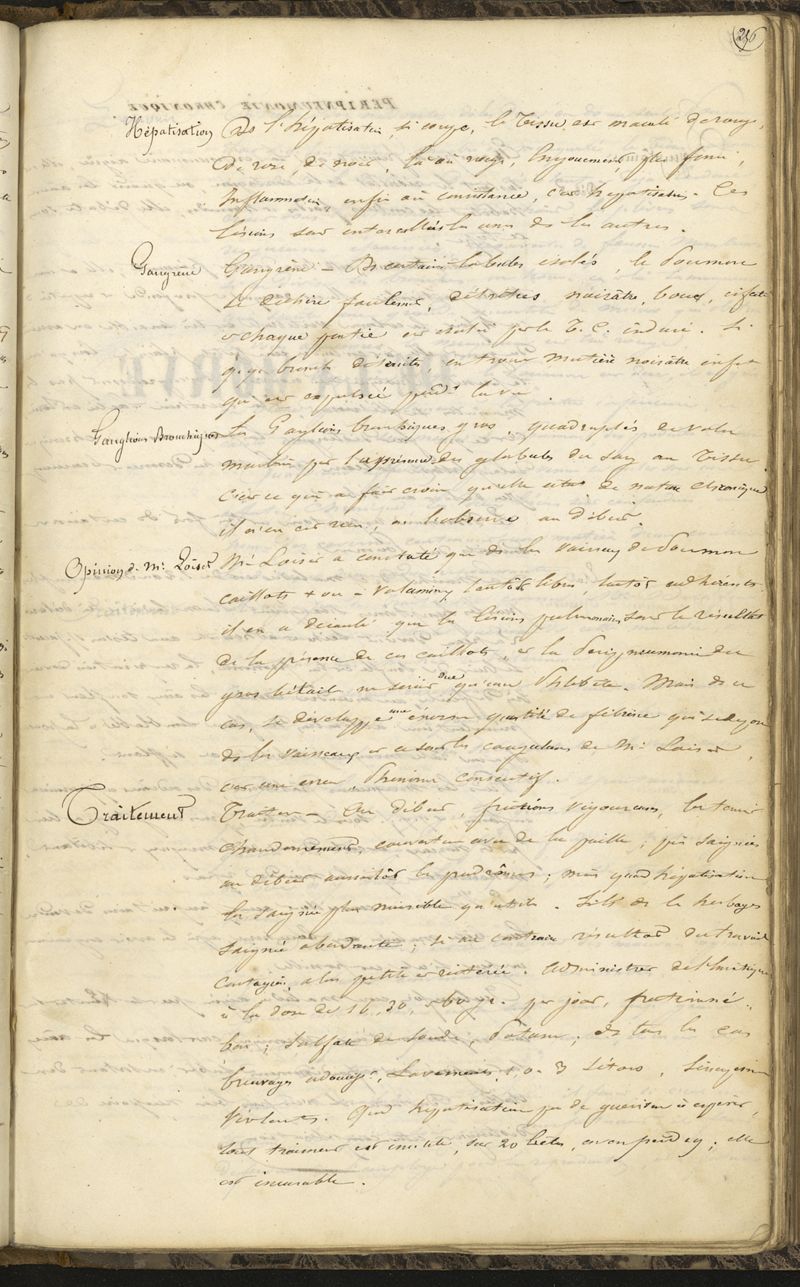 216
Hépatisation Ds l'hépatisation, si rouge, le tissu est maculé de rouge,
de rose, de noir, là où rouge, Engouement, plus foncé,
Inflammation, enfin où consistance, c'est hepatisation. Ces
lésions sont intercallées les unes ds les autres.
Gangrène Gangrène - Ds certains lobules isolés, le Poumon
se déchire facilement, détritus noirâtre, boueux, infect
chaque partie est isolé par le T. C. induré. Si
bronches détruites, on trouve matière noirâtre infecte
qui est expulsée pendt la vie.
Ganglions Bronchiques Les Ganglions bronchiques gros, quadruplés de volume
par des globules du sang au tissu
c'est ce qui a fait croire qu'elle était de nature chronique
il n'en est rien, on l'observe au début.
Opinion de Mr. Loiset Mr Loiset a constaté que ds les vaisseaux de Poumon
caillots + ou - volumineux tantôt libres, tantôt adhérents
il en a déduit que les lésions pulmonaires sont le résultat
de la présence de ces caillots, et la Péripneumonie du
gros bétail ne serait due qu'à une Phlébite. Mais ds ce
cas, se développe une énorme quantité de fibrine qui se dépose
ds les vaisseaux et ce sont les coagulums de Mr Loiset,
c'est une erreur, Phénomène consécutif.
Traitement Traitem - Au début, frictions vigoureuses, les tenir
chaudement, couverture avec de la paille; puis saignées
au début aussitôt les prodrômes; mais quand hépatisation
la saignée plus nuisible qu'utile. S'ils ds les herbages
saignée abondante; si au contraire résultat du travail
contagion, alors petite et réitérée. administrer de l'émétique
à la dose de 16, 30, 60 gr. par jour, fractionné.
bon; sulfate de soude, Potasse. ds tous les cas
breuvages adoucists, Lavements, 1, 2 3 sétons, Sinapismes
violents. Qud hépatisation peu de guérison à espérer,
tout traitement est inutile, sur 20 bêtes, on en perd 19; elle
est incurable.